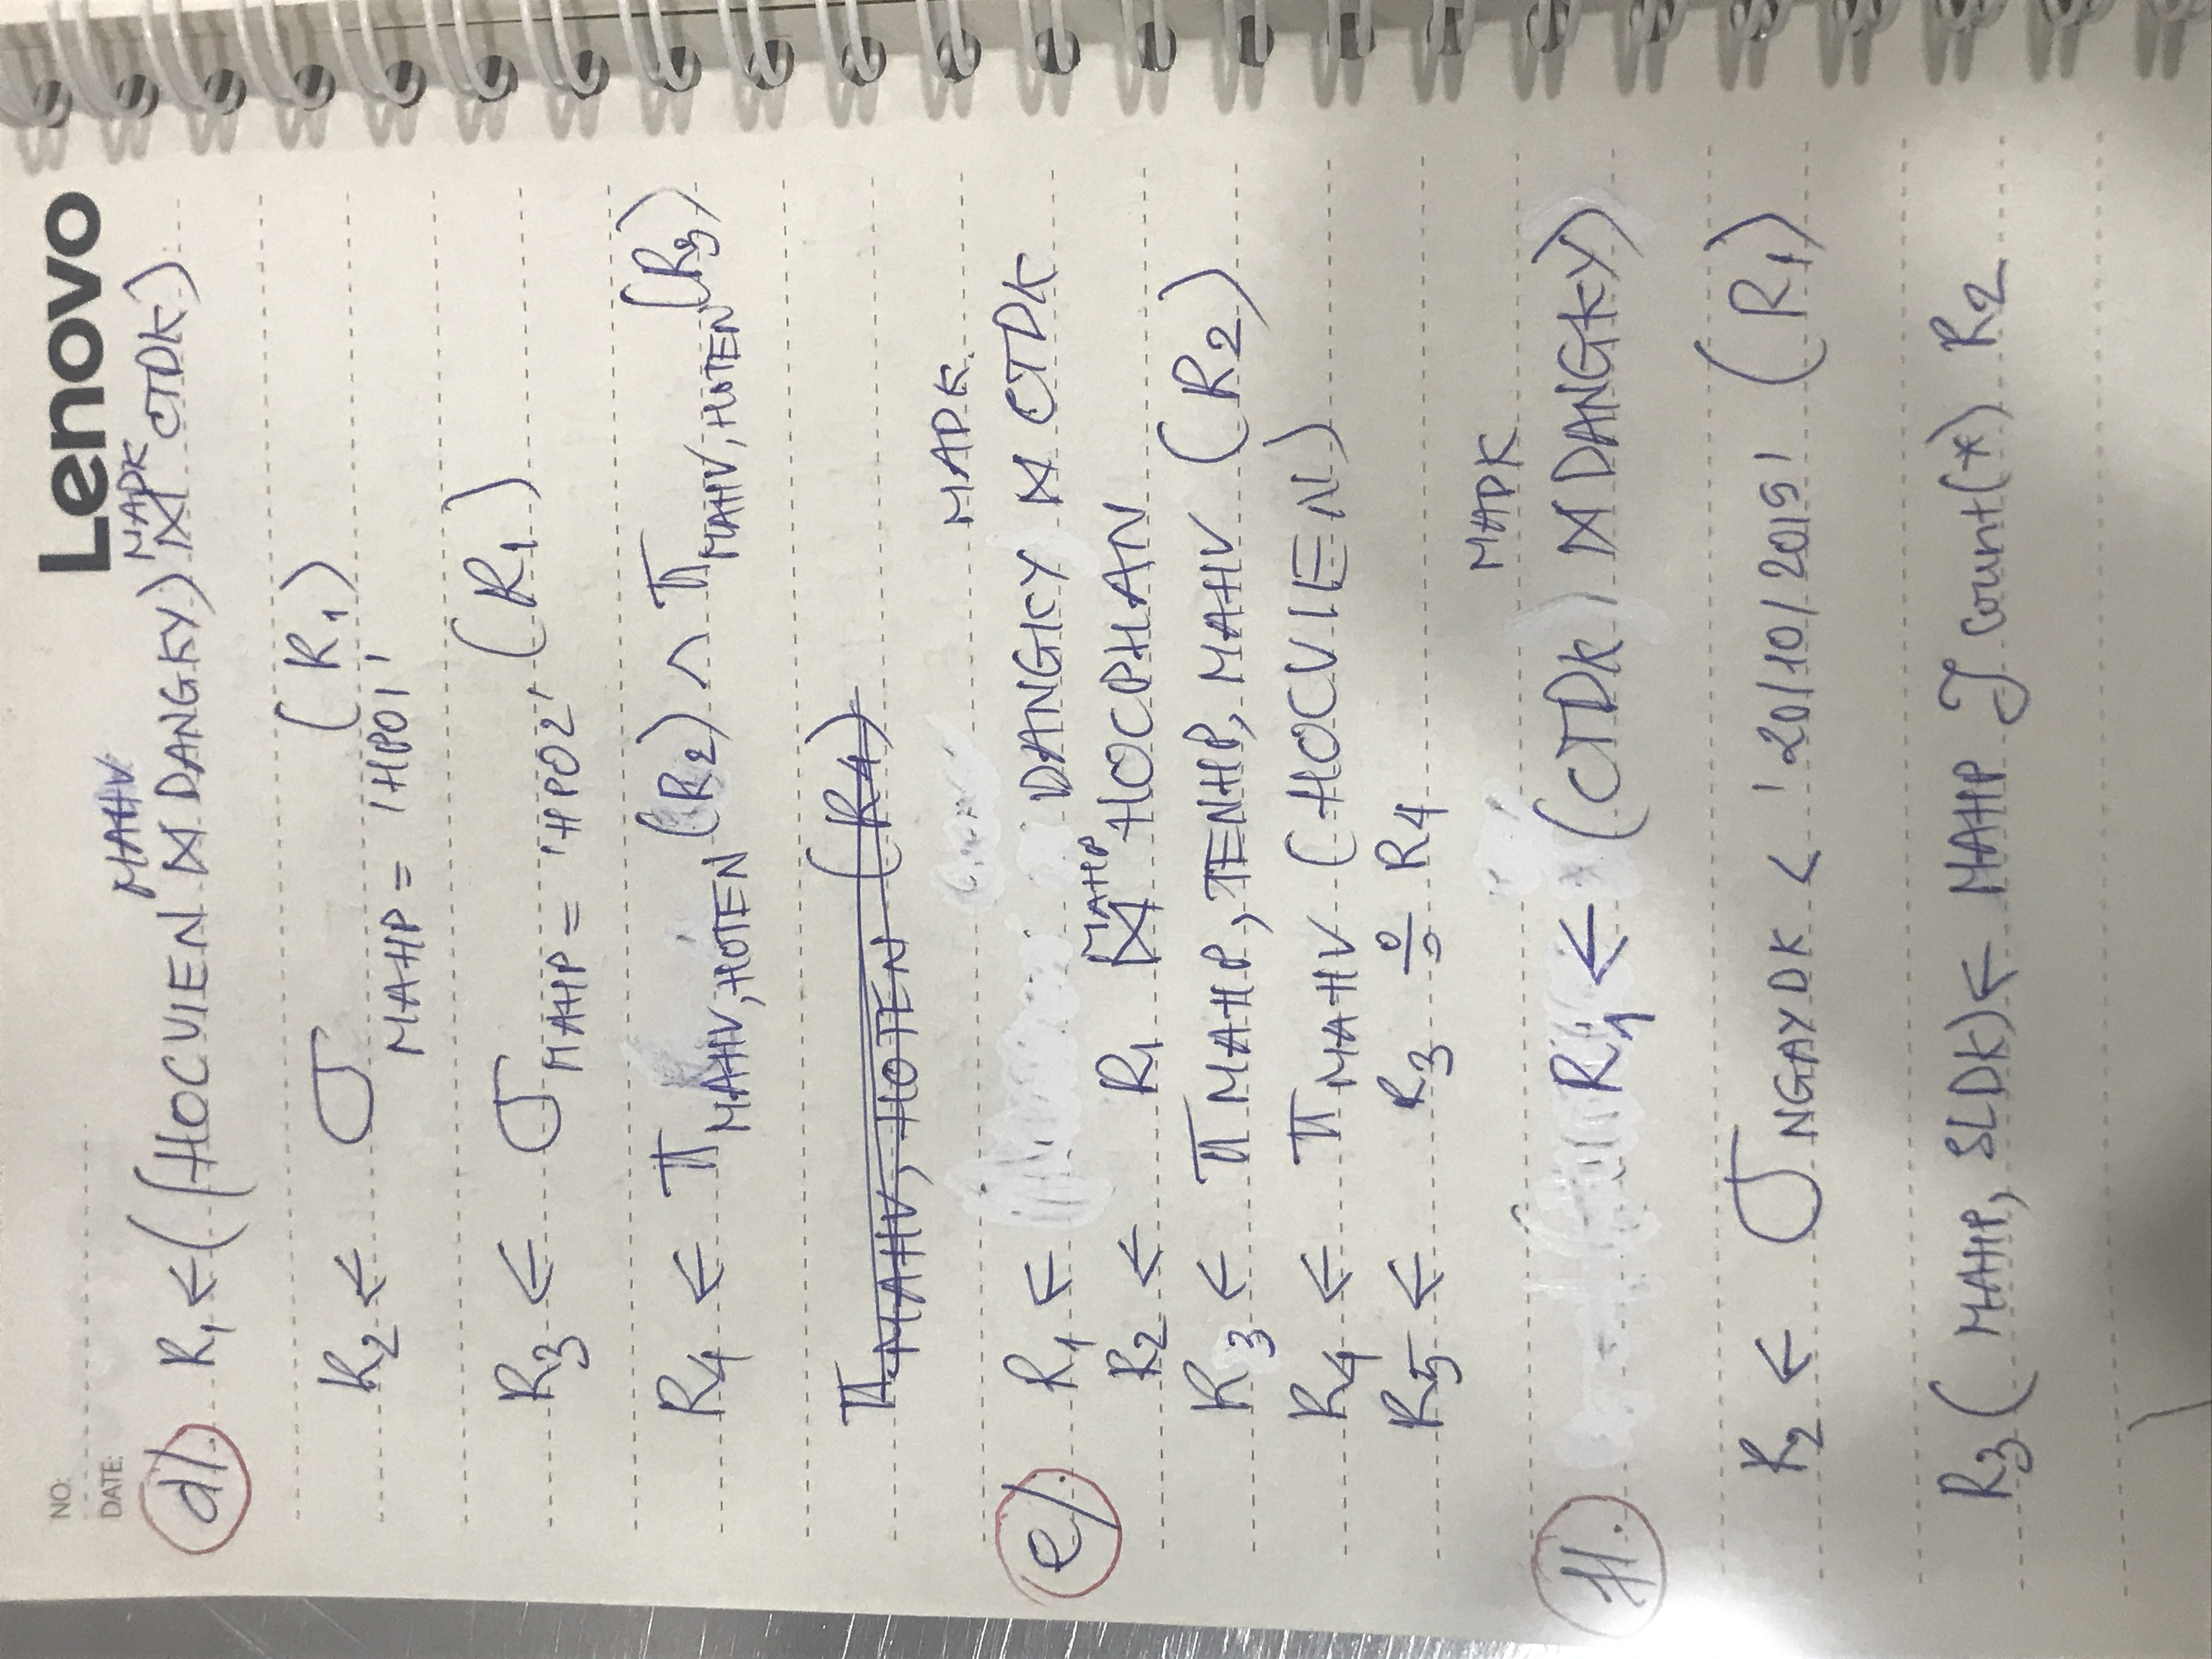 NO:
Lenovo
DATE:
MAHV MADK
d/. R1 ← ((HOCVIEN ⋈ DANGKY) ⋈ CTDK)
R2 ← σ MAHP = 'HP01' (R1)
R3 ← σ MAHP = 'HP02' (R1)
R4 ← π MAHV, HOTEN (R2) ∧ π MAHV, HOTEN (R3)
π MAHV, HOTEN (R4)
MADK.
e/. R1 ← DANGKY ⋈ CTDK
MAHP
R2 ← R1 ⋈ HOCPHAN
R3 ← π MAHP, TENHP, MAHV (R2)
R4 ← π MAHV (HOCVIEN)
R5 ← R3 ÷ R4
MADK
f/. R1 ← (CTDK ⋈ DANGKY)
R2 ← σ NGAYDK < '20/10/2019' (R1)
R3 (MAHP, SLDK) ← MAHP ℑ count(*) R2